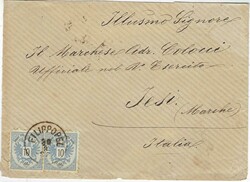 Illusmo Signore
Il Marchese Cdr. Colocci
Uffiziale nel R.o Esercito
Jesi
(Marche)
Italia
FILIPPOPEL
10 10